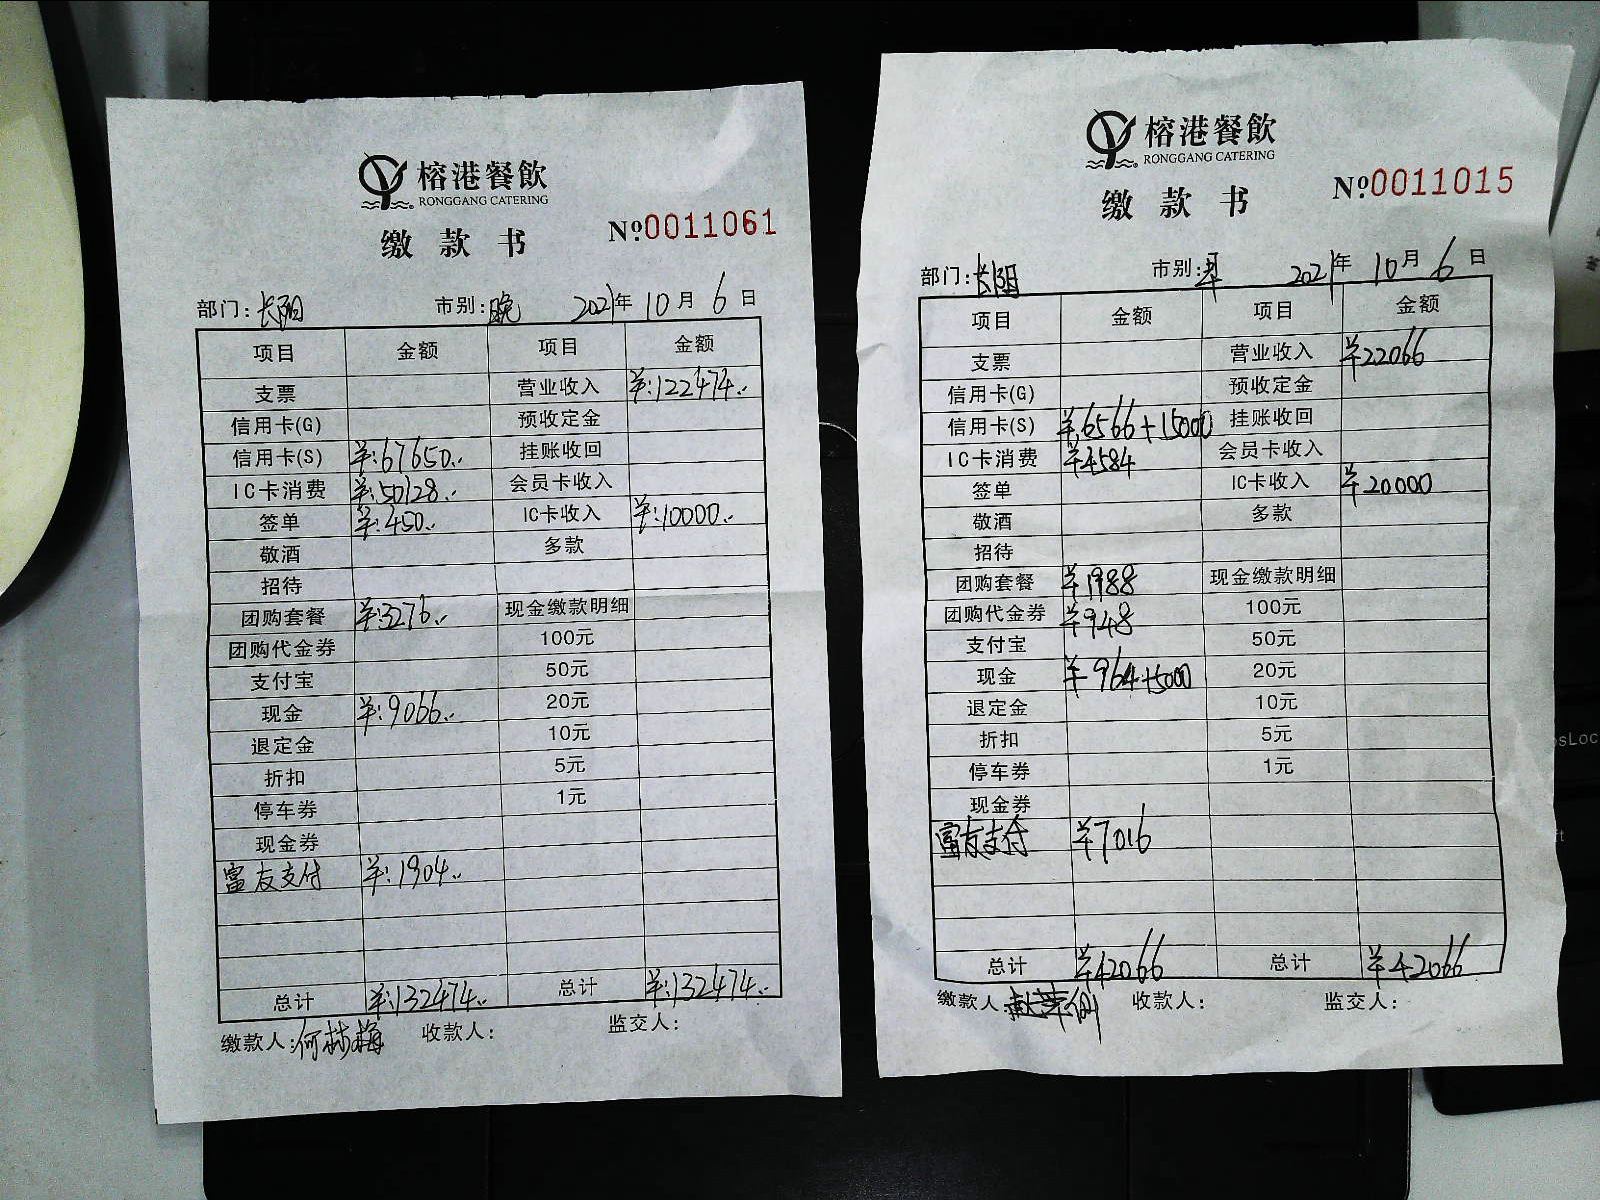 榕港餐飲
RONGGANG CATERING
缴款书
№0011061
部门:长阳 市别:晚 2021年10月6日
项目 金额 项目 金额
支票 营业收入 ¥:122474..
信用卡(G) 预收定金
信用卡(S) ¥:67650.. 挂账收回
IC卡消费 ¥:50128.. 会员卡收入
签单 ¥:450.. IC卡收入 ¥:10000..
敬酒 多款
招待
团购套餐 ¥:3276.. 现金缴款明细
团购代金券 100元
支付宝 50元
现金 ¥:9066.. 20元
退定金 10元
折扣 5元
停车券 1元
现金券
富友支付 ¥:1904..
总计 ¥:132474.. 总计 ¥:132474..
缴款人:何梦梅 收款人: 监交人:
榕港餐飲
RONGGANG CATERING
缴款书
№0011015
部门:长阳 市别:早 2021年10月6日
项目 金额 项目 金额
支票 营业收入 ¥22066
信用卡(G) 预收定金
信用卡(S) ¥6566+15000 挂账收回
IC卡消费 ¥4584 会员卡收入
签单 IC卡收入 ¥20000
敬酒 多款
招待
团购套餐 ¥1988 现金缴款明细
团购代金券 ¥948 100元
支付宝 50元
现金 ¥964+5000 20元
退定金 10元
折扣 5元
停车券 1元
现金券
富友支付 ¥7016
总计 ¥42066 总计 ¥42066
缴款人: 收款人: 监交人: